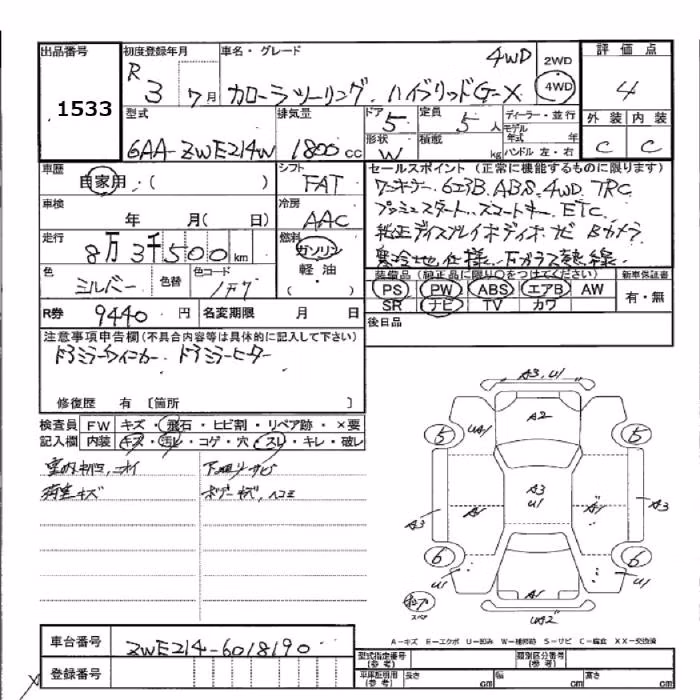 出品番号
1533
初度登録年月
R 3 7月
車名・グレード
4WD
カローラツーリング ハイブリッドG-X
2WD
4WD
評価点
4
外装 内装
C C
型式
6AA-ZWE214W
排気量
1800cc
ドア 5
定員 5人
形状 W
積載 kg
ディーラー・並行
モデル年式 年
ハンドル 左・右
車歴
自家用・( )
シフト
FAT
車検
年 月( 日)
冷房
AAC
走行
8万3千500km
燃料
ガソリン
軽・油
( )
色
シルバー
色替
色コード
1F7
R券 9440円 名変期限 月 日
セールスポイント (正常に機能するものに限ります)
ワンオーナー 6エアB. ABS. 4WD. TRC
プッシュスタート. スマートキー. ETC.
純正ディスプレイオーディオ ナビ Bカメラ
寒冷地仕様. Fガラス熱線.
装備品(純正品に限り○をつけてください)
PS PW ABS エアB AW
SR ナビ TV カワ
新車保証書
有・無
後日品
注意事項申告欄(不具合内容等は具体的に記入して下さい)
ドアミラーウィンカー. ドアミラーヒーター
修復歴 有 〔箇所 〕
検査員記入欄
FW キズ・飛石・ヒビ割・リペア跡・×要
内装 キズ・汚レ・コゲ・穴・スレ・キレ・破レ
下廻リサビ
ボデーキズ,ヘコミ
A3, U1
A2
5 UA1
5
A3
U1
A3
A1
A1
A3
6 U1
6
U1
A1
UA2
スペア
A-キズ E-エクボ U-凹み W-補修跡 S-サビ C-腐食 XX-交換済
車台番号
ZWE214-6018190
登録番号
型式指定番号(参考)
類別区分番号(参考)
車庫証明用(参考) 長さ cm 幅 cm 高さ cm